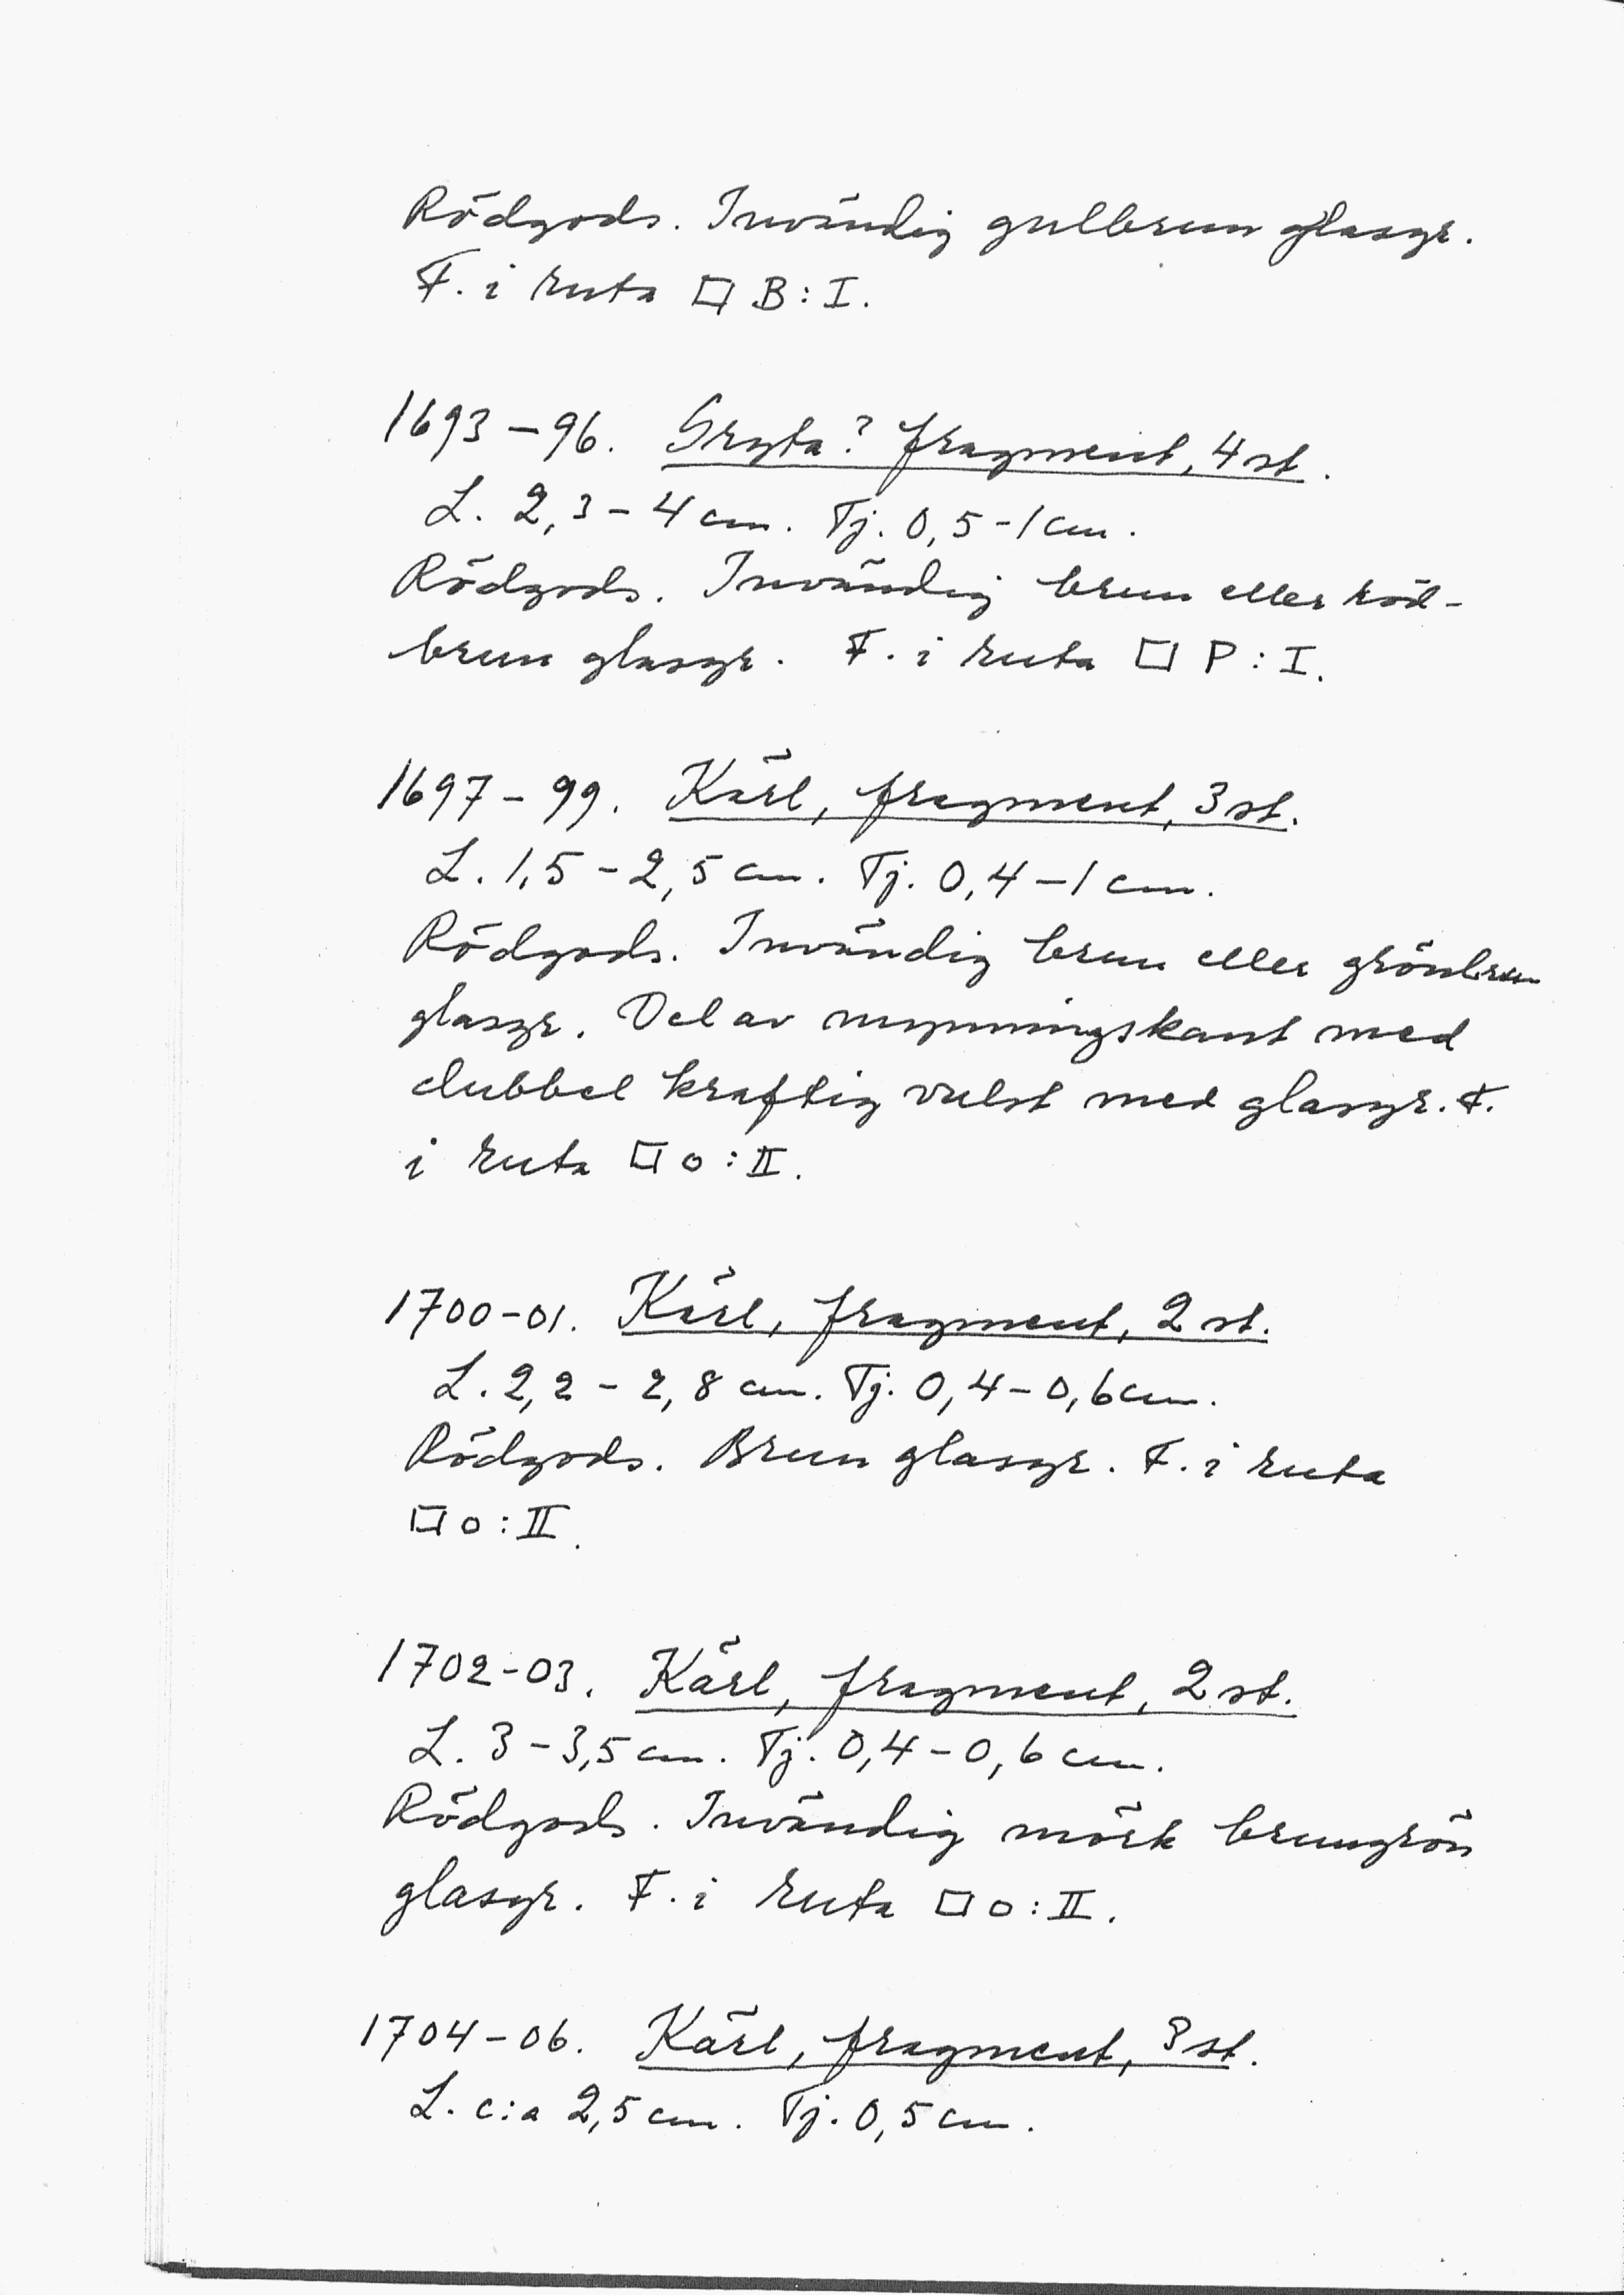 Rödgods. Invändig gulbrun glasyr.
F. i ruta □ B : I.
1693 – 96. Gryta? fragment, 4 st.
L. 2,3 – 4 cm. Tj. 0,5 – 1 cm.
Rödgods. Invändig brun eller röd-
brun glasyr. F. i ruta □ P : I.
1697 – 99. Kärl, fragment, 3 st.
L. 1,5 – 2,5 cm. Tj. 0,4 – 1 cm.
Rödgods. Invändig brun eller grönbrun
glasyr. Del av mynningskant med
dubbel kraftig vulst med glasyr. F.
i ruta □ O : II.
1700 – 01. Kärl, fragment, 2 st.
L. 2,2 – 2,8 cm. Tj. 0,4 – 0,6 cm.
Rödgods. Brun glasyr. F. i ruta
□ O : II.
1702 – 03. Kärl, fragment, 2 st.
L. 3 – 3,5 cm. Tj. 0,4 – 0,6 cm.
Rödgods. Invändig mörk brungrön
glasyr. F. i ruta □ O : II.
1704 – 06. Kärl, fragment, 3 st.
L. c:a 2,5 cm. Tj. 0,5 cm.